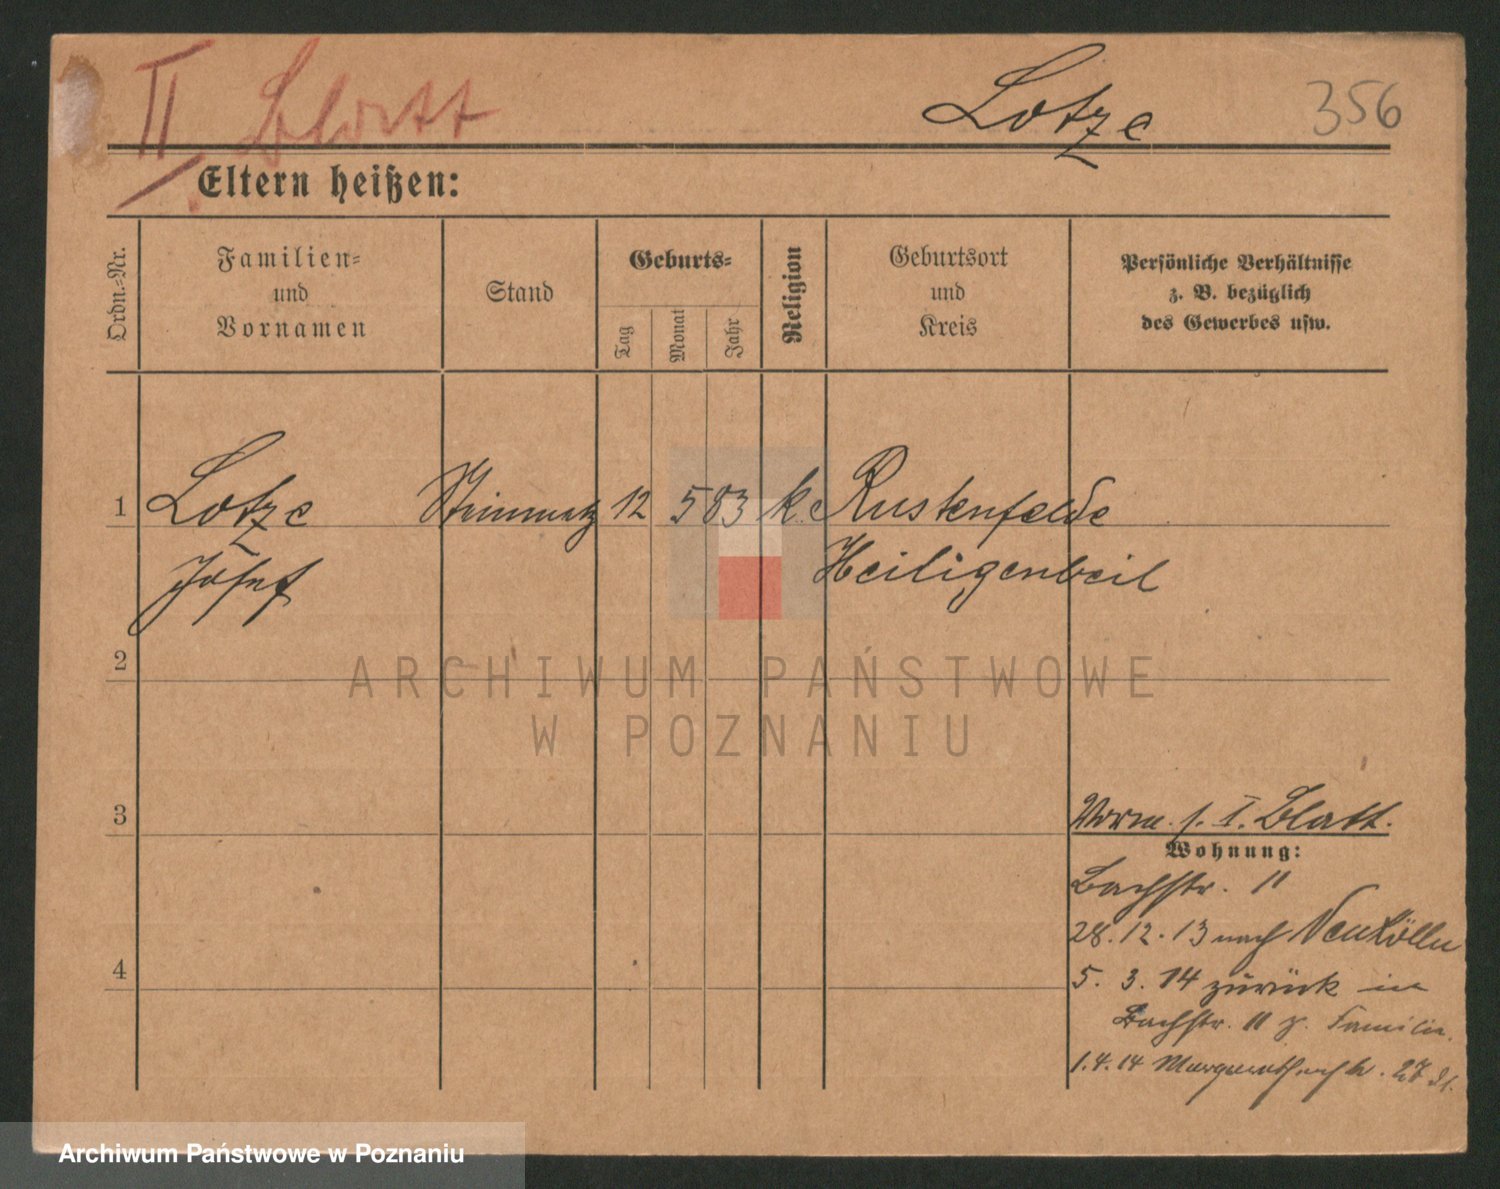 II Blatt
Lotze
356
Eltern heißen:
Ordn.-Nr.
Familien-
und
Vornamen
Stand
Geburts-
Tag
Monat
Jahr
Religion
Geburtsort
und
Kreis
Persönliche Verhältnisse
z. B. bezüglich
des Gewerbes usw.
1
Lotze
Steinmetz
12
5
83
k.
Rustenfelde
Josef
Heiligenbeil
2
3
4
Vorm. s. I. Blatt.
Wohnung:
Bachstr. 11
28.12.13 nach Neukölln
5. 3. 14 zurück in
Bachstr. 11 z. Familie.
1.4.14 27
ARCHIWUM PAŃSTWOWE
W POZNANIU
Archiwum Państwowe w Poznaniu